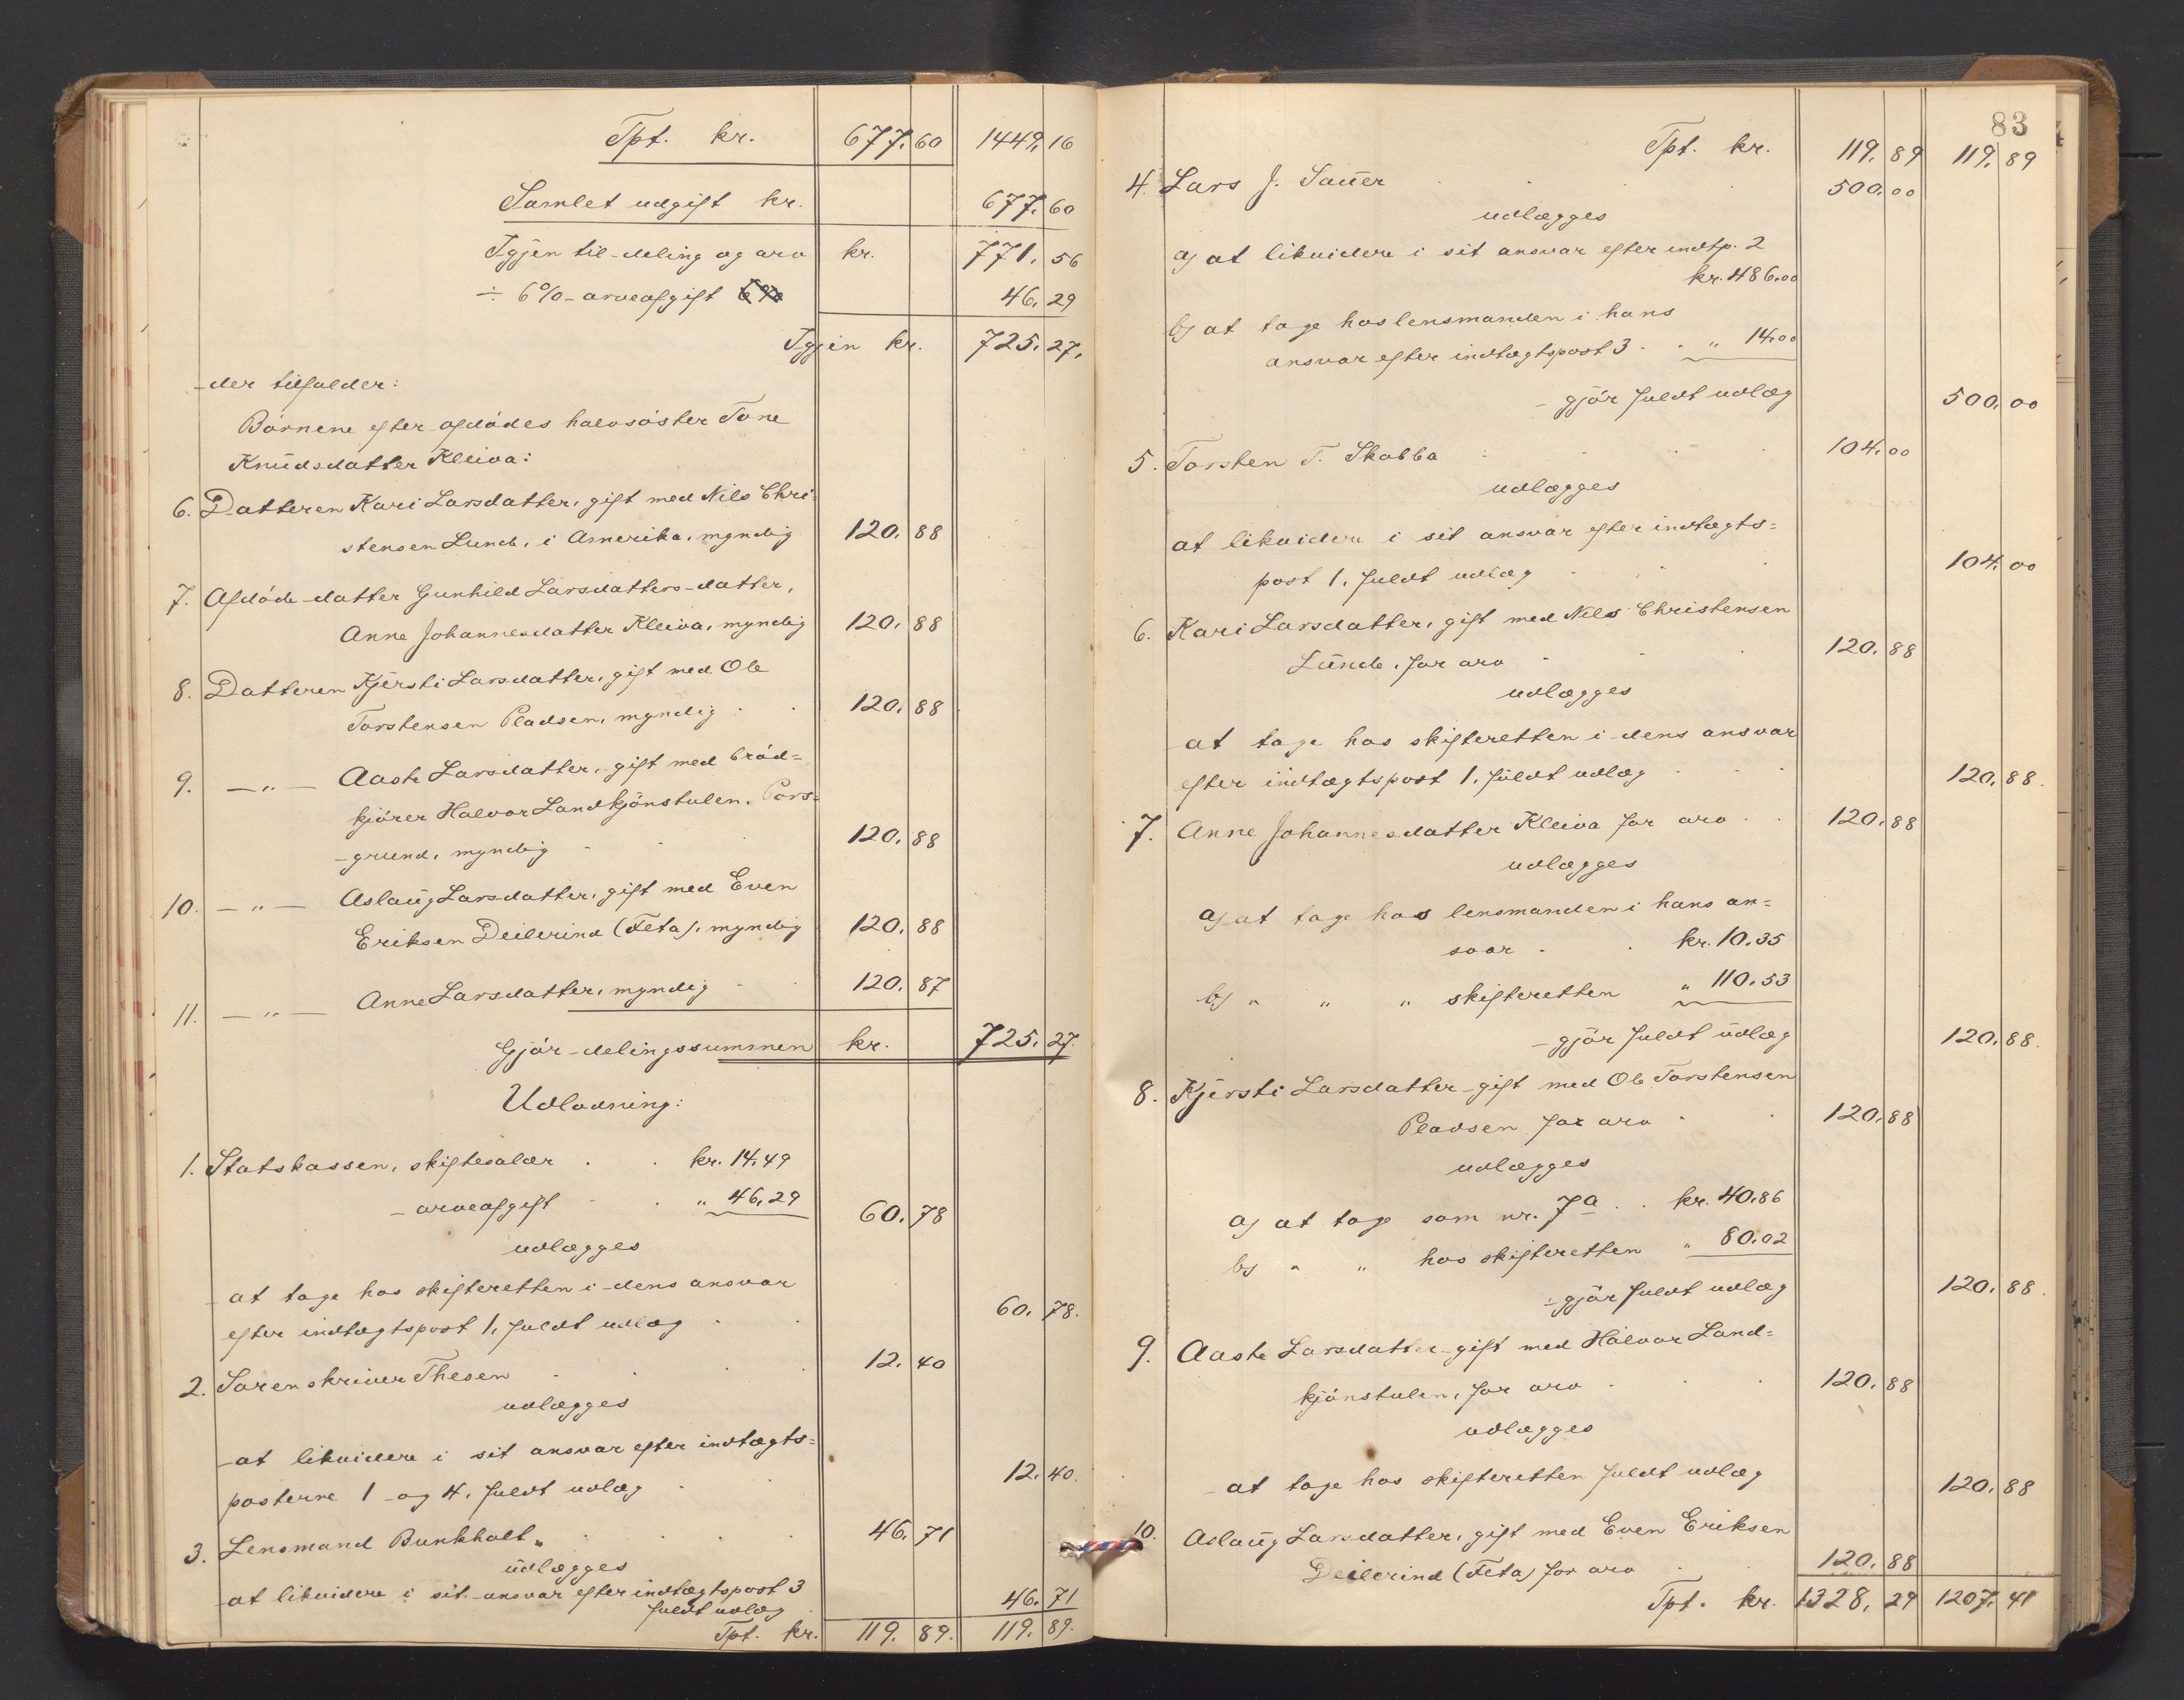 Tpt. kr. 677.60 1449.16
Samlet udgift kr. 677.60
Igjen til deling og arv kr. 771.56
÷ 6%-arveafgift 46.29
Igjen kr. 725.27.
der tilfalder:
Børnene efter afdødes halvsøster Tone
Knudsdatter Kleiva:
6. Datteren Kari Larsdatter, gift med Nils Chri-
stensen Lunde, i Amerika, myndig 120.88
7. Afdøde datter Gunhild Larsdatters datter,
Anne Johannesdatter Kleiva, myndig 120.88
8. Datteren Kjersti Larsdatter, gift med Ole
Torstensen Pladsen, myndig 120.88
9. —„— Aaste Larsdatter, gift med brød=
kjører Halvor Landkjønstulen, Pors=
grund, myndig 120.88
10. —„— Aslaug Larsdatter, gift med Even
Eriksen Deilerind (Feta), myndig 120.88
11. —„— Anne Larsdatter, myndig 120.87
Gjør delingssummen kr. 725.27.
Udlodning:
1. Statskassen, skiftesalær kr. 14.49
arveafgift „ 46.29 60.78
udlægges
at tage hos skifteretten i dens ansvar
efter indtægtspost 1, fuldt udlæg 60.78.
2. Sorenskriver Thesen 12.40
udlægges
at likvidere i sit ansvar efter indtægts=
posterne 1 og 4, fuldt udlæg 12.40.
3. Lensmand Bunkholt 46.71
udlægges
at likvidere i sit ansvar efter indtægtspost 3
fuldt udlæg 46.71
Tpt. kr. 119.89. 119.89.
83
Tpt. kr. 119.89 119.89
4. Lars J. Sauer 500.00
udlægges
a) at likvidere i sit ansvar efter indtp. 2
kr. 486.00
b) at tage hos lensmanden i hans
ansvar efter indtægtspost 3 „ 14.00
gjør fuldt udlæg 500.00
5. Torsten T. Skobba 104.00
udlægges
at likvidere i sit ansvar efter indtægts=
post 1, fuldt udlæg 104.00
6. Kari Larsdatter, gift med Nils Christensen
Lunde, for arv 120.88
udlægges
at tage hos skifteretten i dens ansvar
efter indtægtspost 1, fuldt udlæg 120.88.
7. Anne Johannesdatter Kleiva for arv 120.88
udlægges
a) at tage hos lensmanden i hans an=
svar kr. 10.35
b) „ „ „ skifteretten „ 110.53
gjør fuldt udlæg 120.88.
8. Kjersti Larsdatter gift med Ole Torstensen
Pladsen for arv 120.88
udlægges
a) at tage som nr. 7a kr. 40.86
b) „ „ hos skifteretten „ 80.02
gjør fuldt udlæg 120.88.
9. Aaste Larsdatter gift med Halvor Land=
kjønstulen, for arv 120.88
udlægges
at tage hos skifteretten fuldt udlæg 120.88
10. Aslaug Larsdatter, gift med Even Eriksen
Deilerind (Feta) for arv 120.88
Tpt. kr. 1328.29 1207.41